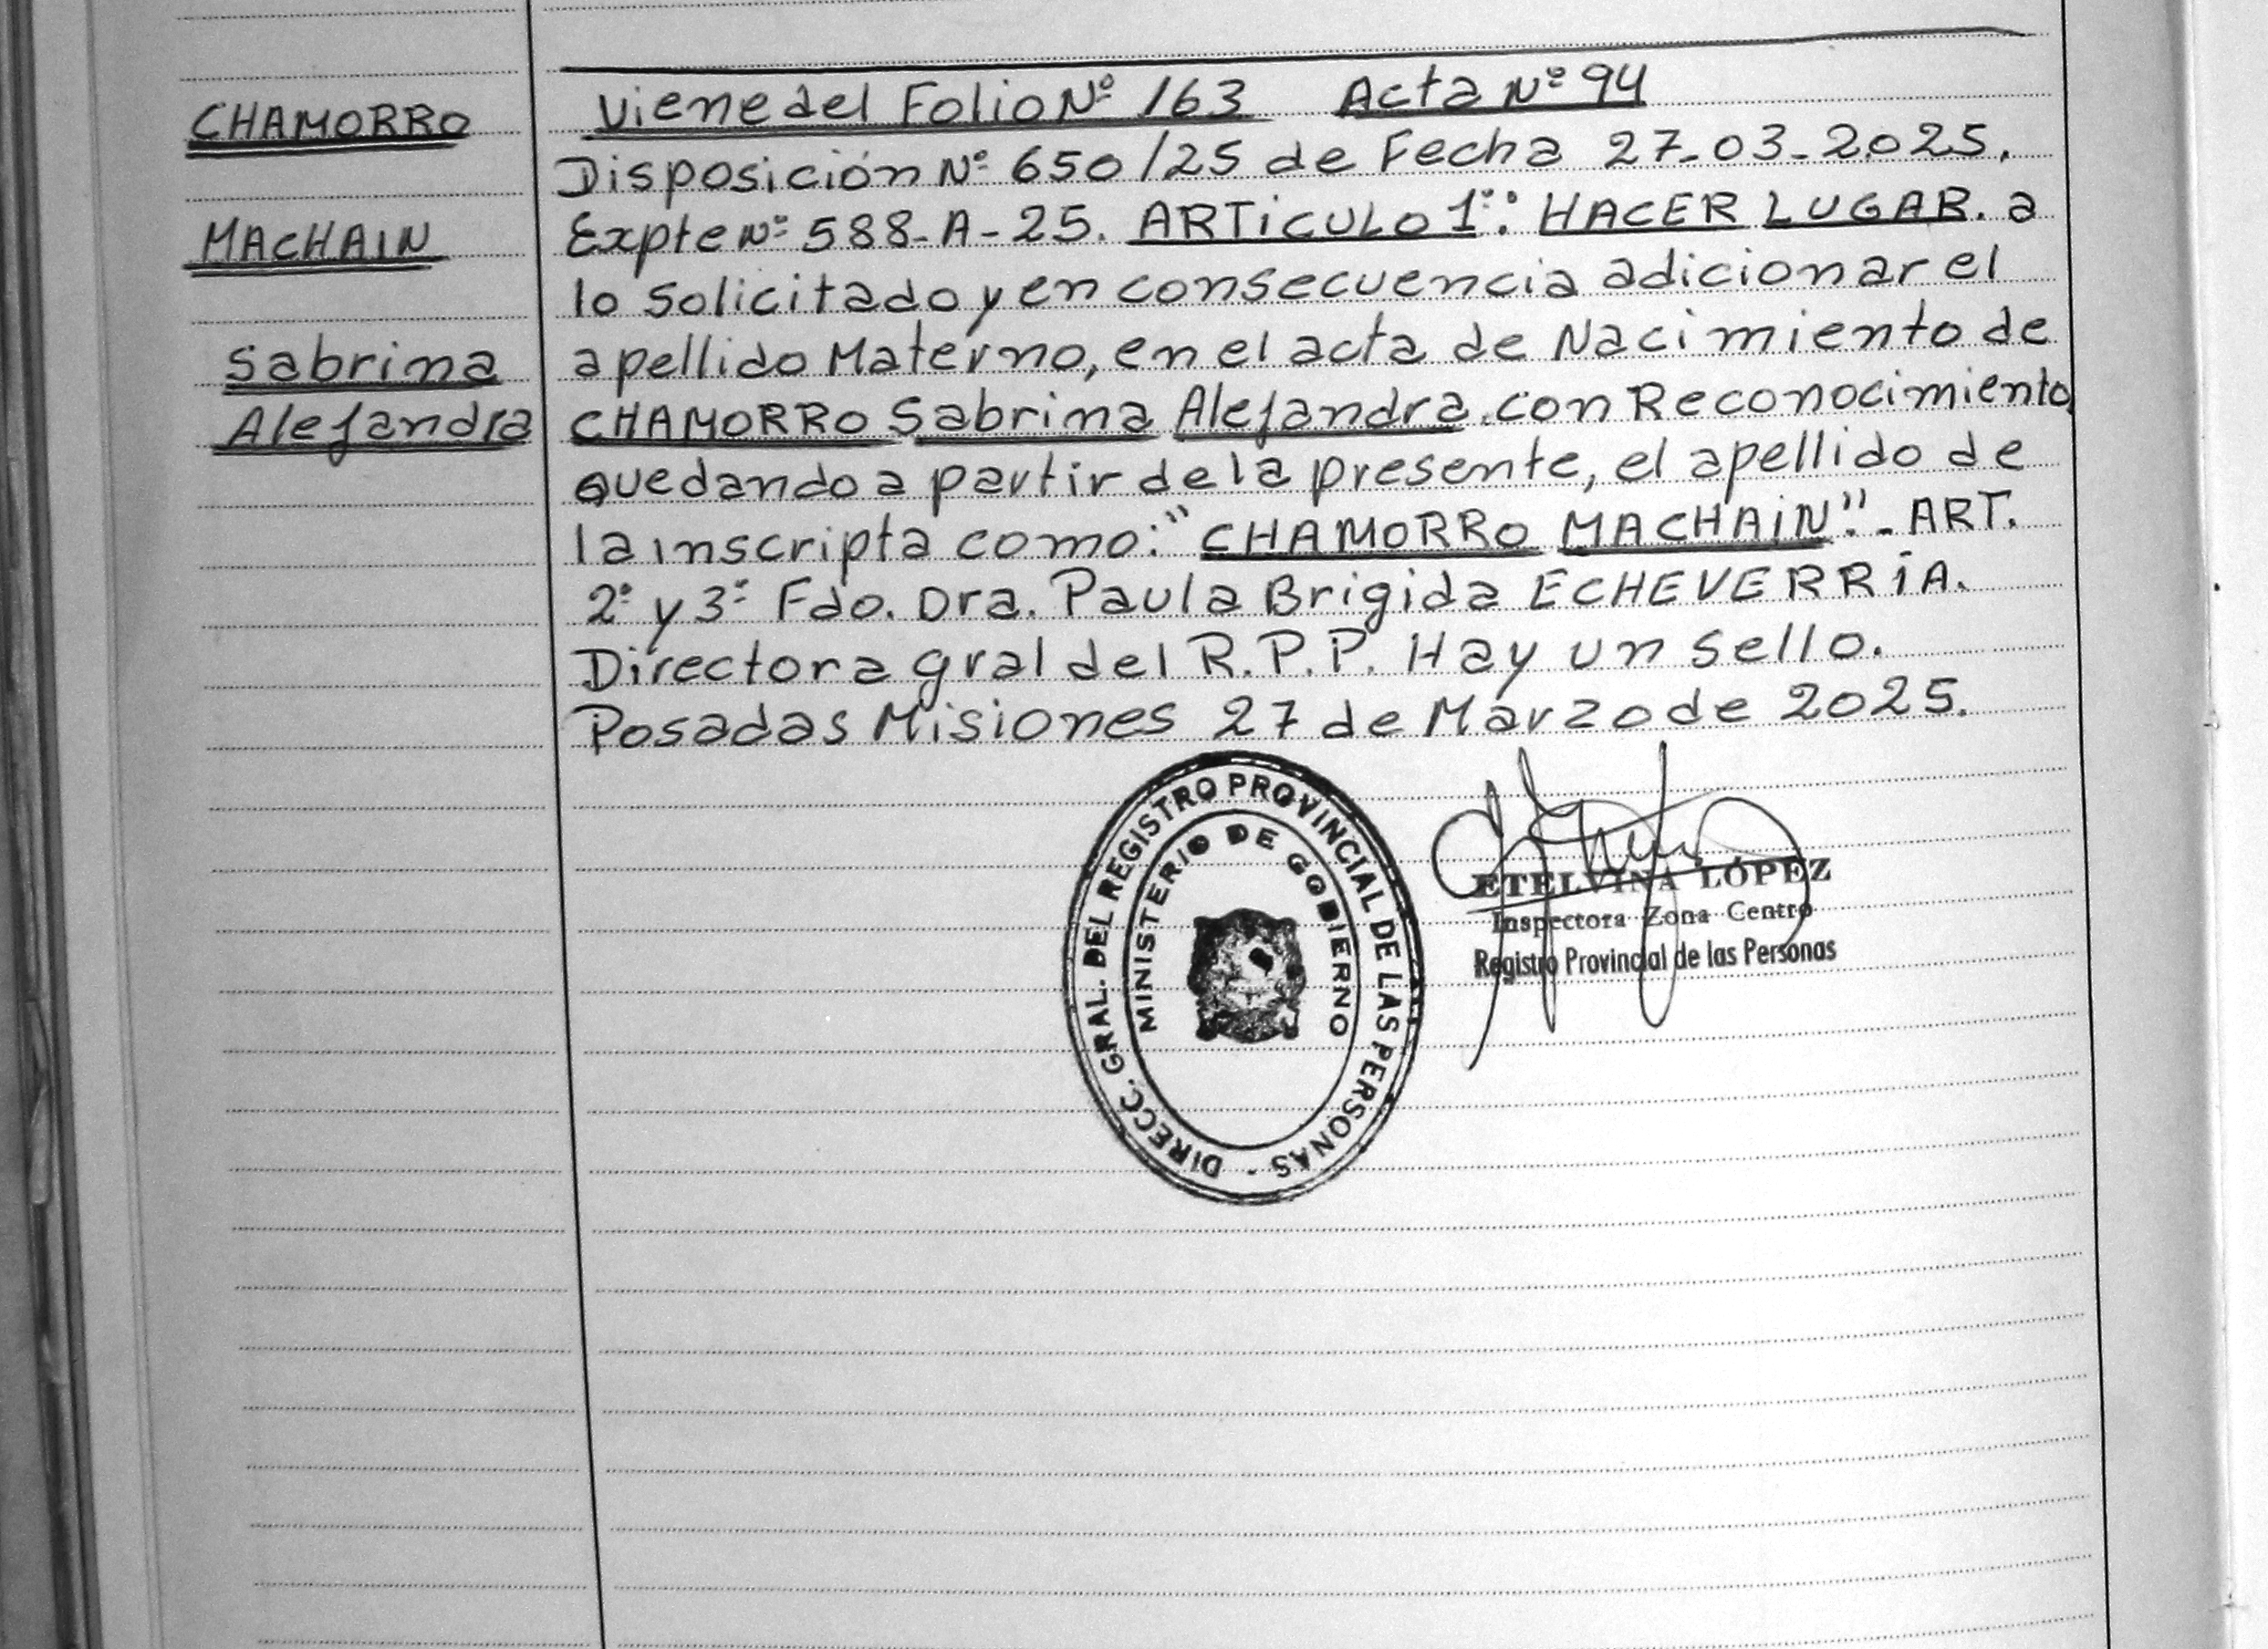 CHAMORRO
MACHAIN
Sabrina
Alejandra
Viene del Folio Nº 163 Acta Nº 94
Disposición Nº 650/25 de Fecha 27-03-2025.
Expte Nº 588-A-25. ARTiCULO 1º: HACER LUGAR. a
lo solicitado y en consecuencia adicionar el
apellido Materno, en el acta de Nacimiento de
CHAMORRO Sabrina Alejandra. con Reconocimiento,
quedando a partir de la presente, el apellido de
la inscripta como: "CHAMORRO MACHAiN".- ART.
2º y 3º Fdo. Dra. Paula Brigida ECHEVERRiA.
Directora gral del R.P.P. Hay un sello.
Posadas Misiones 27 de Marzo de 2025.
DIRECC. GRAL. DEL REGISTRO PROVINCIAL DE LAS PERSONAS -
MINISTERIO DE GOBIERNO
ETELVINA LÓPEZ
Inspectora Zona Centro
Registro Provincial de las Personas